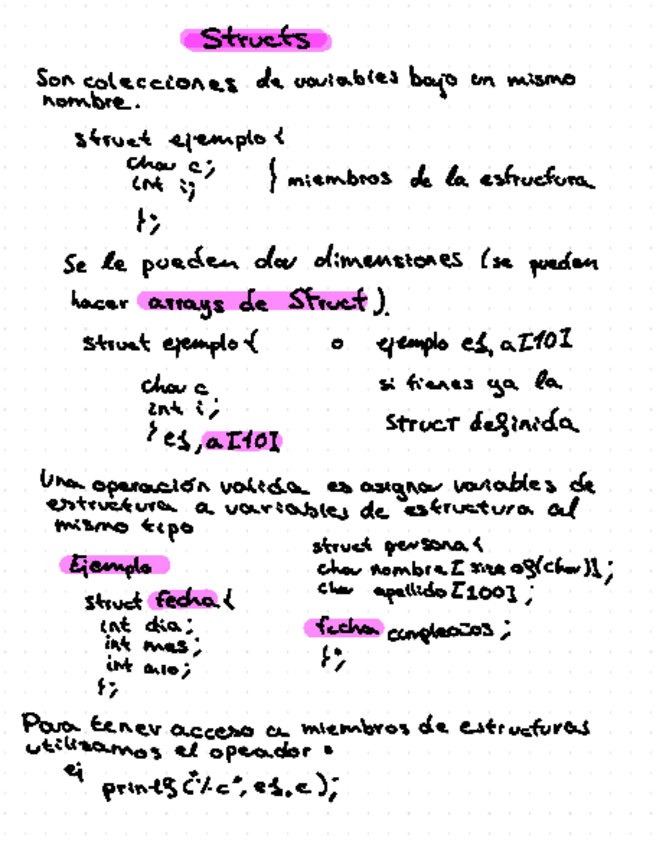 Structs
Son colecciones de variables bajo un mismo
nombre.
struct ejemplo {
char c;
int i;
} miembros de la estructura
};
Se le pueden dar dimensiones (se pueden
hacer arrays de Struct).
struct ejemplo {
char c
int i;
} e1, a[10]
o ejemplo e1, a[10]
si tienes ya la
struct definida
Una operación valida es asignar variables de
estructura a variables de estructura al
mismo tipo
Ejemplo
struct fecha {
int dia;
int mes;
int año;
};
struct persona {
char nombre[sizeof(char)];
char apellido [100];
fecha cumpleaños;
};
Para tener acceso a miembros de estructuras
utilizamos el opeador .
ej
printf("%c", e1.c);